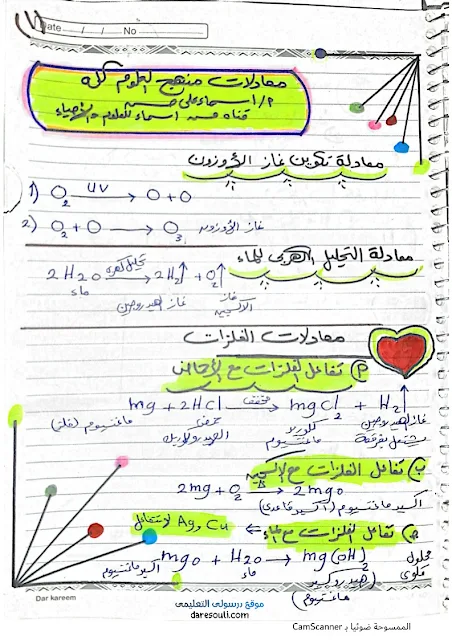 Date / / No
معادلات منهج العلوم كله
م/ اسماء على حسن
قناه مس اسماء للعلوم والاحياء
معادلة تكوين غاز الأوزون
1) O2 UV → O + O
2) O2 + O → O3 غاز الأوزون
معادلة التحليل الكهربى للماء
2H2O تحليل كهربى → 2H2↑ + O2↑
ماء غاز الهيدروجين غاز الاكسجين
معادلات الفلزات
أ) تفاعل الفلزات مع الأحماض
mg + 2HCl مخفف → mgCl2 + H2↑
ماغنسيوم (فلز) حمض الهيدروكلوريك كلوريد ماغنسيوم غاز الهيدروجين يشتعل بفرقعة
ب) تفاعل الفلزات مع الأكسجين
2mg + O2 Δ → 2mgo
اكسيد ماغنسيوم (اكسيد قاعدى)
ج) تفاعل الفلزات مع الماء ← Cu و Ag لا تتفاعل
mgo + H2O → mg(OH)2
اكسيد ماغنسيوم ماء (هيدروكسيد ماغنسيوم) محلول قلوى
Dar kareem
موقع درسولى التعليمى
daresouli.com
الممسوحة ضوئيا بـ CamScanner